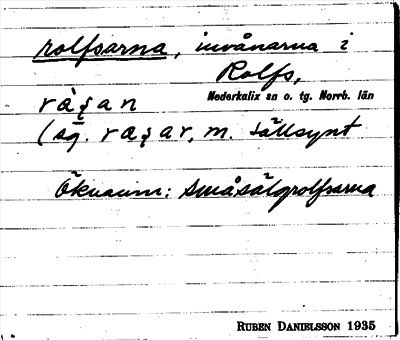 rolfsarna, invånarna i
Rolfs,
Nederkalix sn o. tg. Norrb. län
(sg. m. sällsynt
Öknamn: småsälgrolfsarna
RUBEN DANIELSSON 1935